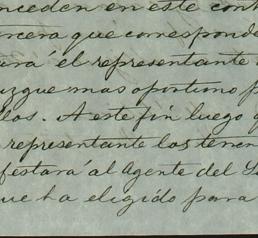 nceden en este cont
rcera que corresponde
ará el representante
uzgue mas oportuno p
llos. A este fin luego q
representante los tener
festará al Agente del
ue ha eligido para